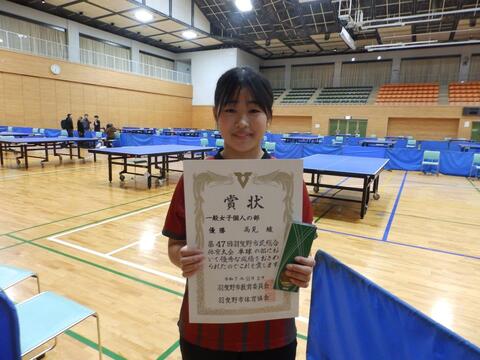 賞状
一般女子個人の部
優勝 高見 綾
第47回羽曳野市民総合
体育大会 卓球 の部にお
いて優秀な成績をおさめ
られたのでこれを賞します
羽曳野市教育委員会
羽曳野市体育協会